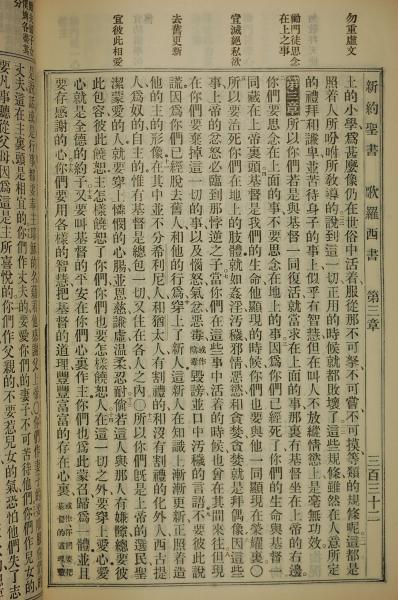 新約聖書 歌羅西書 第三章 三百三十二
勿重虛文
勸門徒思念在上之事
宜滅絕私欲
去舊更新
宜彼此相愛
上的小學爲甚麼像仍在世俗中活着服從那不可拏不可嘗不可摸等類的規條呢這都是
照着人所吩咐所教導的說到這一切正用的時候就都敗壞了這些規條雖然在人意所定
的禮拜和謙卑並苦待身子的事上似乎有智慧但在叫人不放縱情慾上是毫無功效
第三章所以你們若是與基督一同復活就當求在上面的事那裏有基督坐在上帝的右邊
你們要思念在上面的事不要思念在地上的事因爲你們已經死了你們的生命與基督一
同藏在上帝裏頭基督是我們的生命他顯現的時候你們也要與他一同顯現在榮耀裏〇
所以要治死你們在地上的肢體就如姦淫汚穢邪情惡慾和貪婪貪婪就是拜偶像因這些
事上帝的忿怒必臨到那悖逆之子當你們在這些事中活着的時候也曾在其間來往但現
在你們要棄掉這一切的事以及惱怒氣忿惡毒或作陰毒毀謗並口中汚穢的言語不要彼此說
謊因爲你們已經脫去舊人和他的行爲穿上了新人這新人在知識上漸漸更新正照着造
他的主的形像在其中並不分希利尼人和猶太人有割禮的和沒有割禮的化外人西古提
人爲奴的自主的惟有基督是總包一切又住在各人之內〇所以你們旣是上帝的選民聖
潔蒙愛的人就要穿上憐憫的心腸並恩慈謙虛溫柔忍耐倘若這人與那人有嫌隙總要彼
此包容彼此饒恕主怎樣饒恕了你們你們也要怎樣饒恕人在這一切之外要穿上愛心愛
心就是全德的約子又要叫基督的平安在你們心裏作主你們也爲此蒙召歸爲一體並且
要存感謝的心你們要用各樣的智慧把基督的道理豐豐富富的存在心裏
丈夫這在主裏頭是相宜的你們作丈夫的要愛你們的妻子不可苦待他們你們作兒女的
要凡事聽從父母因爲這是主所喜悅的你們作父親的不要惹兒女的氣恐怕他們失了志